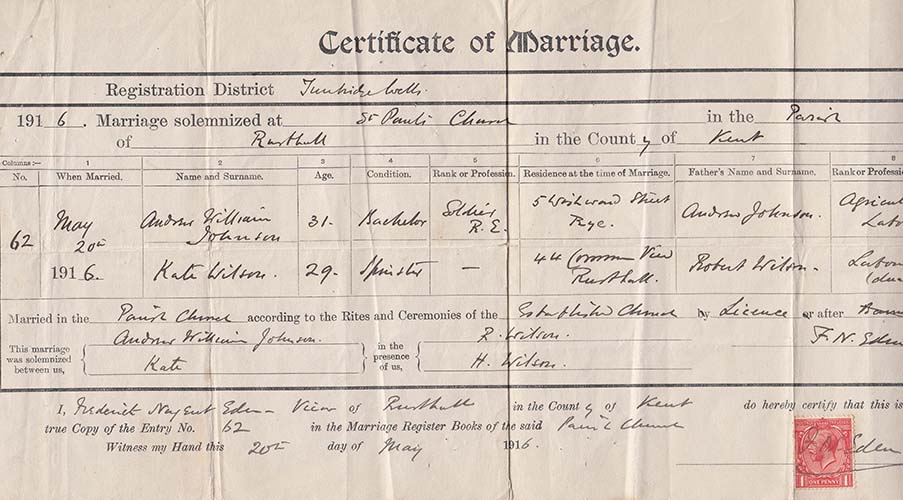 Certificate of Marriage.
Registration District Tunbridge Wells.
1916. Marriage solemnized at St Paul's Church in the Parish
of Rusthall in the County of Kent
Columns:— 1 2 3 4 5 6 7 8
No. When Married. Name and Surname. Age. Condition. Rank or Profession. Residence at the time of Marriage. Father's Name and Surname. Rank or Profess
62 May 20th 1916. Andrew William Johnson 31. Bachelor Soldier R.E. 5 Street Rye. Andrew Johnson. Agricul Labo
Kate Wilson. 29. Spinster — 44 Common View Rusthall. Robert Wilson. Labou
Married in the Parish Church according to the Rites and Ceremonies of the Established Church by Licence or after
This marriage was solemnized between us, Andrew William Johnson. Kate in the presence of us, R. Wilson. H. Wilson. F. N. Eden
I, Frederick Nugent Eden Vicar of Rusthall in the County of Kent do hereby certify that this is
true Copy of the Entry No. 62 in the Marriage Register Books of the said Parish Church
Witness my Hand this 20th day of May 1916. Eden
1 ONE PENNY 1